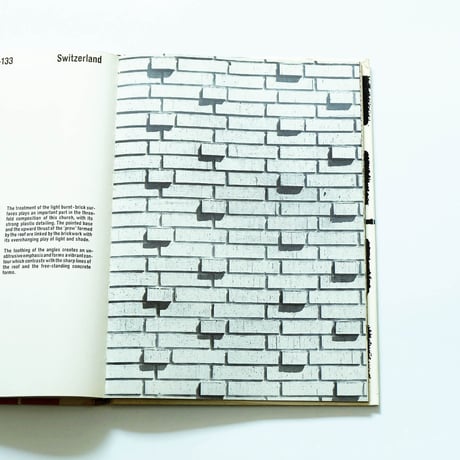 -133
Switzerland
The treatment of the light burnt-brick sur-
faces plays an important part in the three-
fold composition of this church, with its
strong plastic detailing. The pointed base
and the upward thrust of the 'prow' formed
by the roof are linked by the brickwork with
its overhanging play of light and shade.
The toothing of the angles creates an un-
obtrusive emphasis and forms a vibrant con-
tour which contrasts with the sharp lines of
the roof and the free-standing concrete
forms.